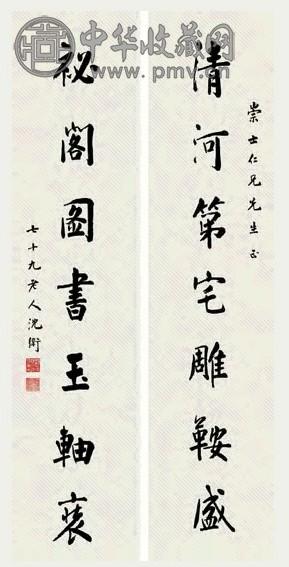 中华收藏网
www.pmv.cn
崇士仁兄先生正
清河第宅雕鞍盛
祕閣圖書玉軸
七十九老人沈衛